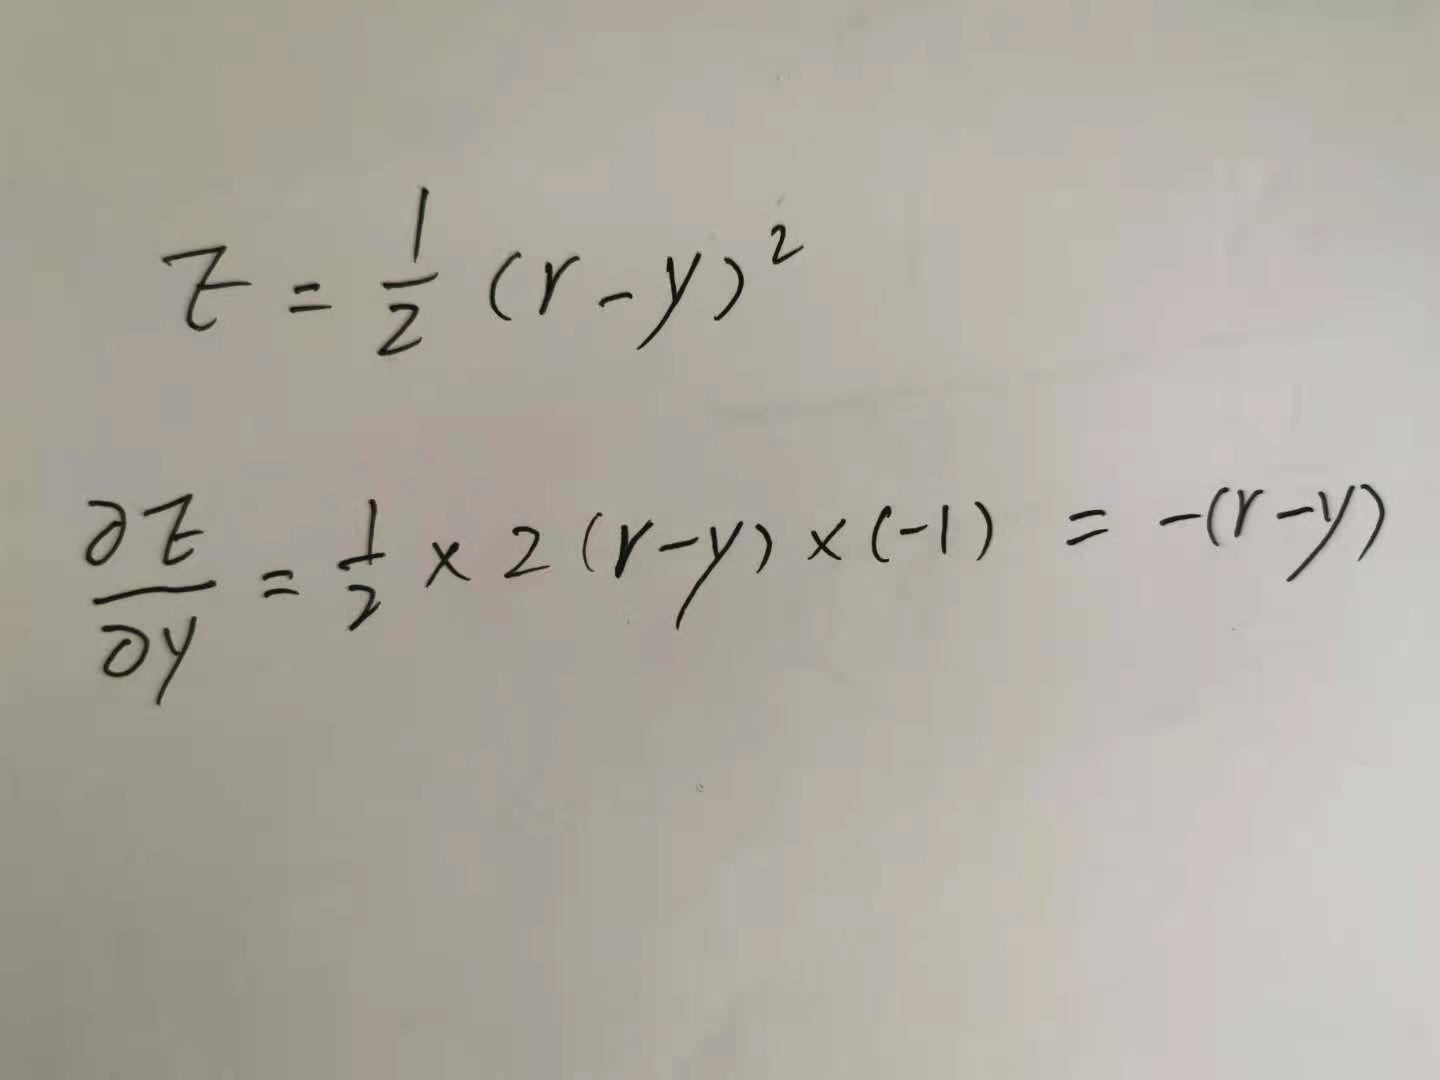 z = 1/2 (r - y)²
∂z/∂y = 1/2 × 2 (r - y) × (-1) = -(r - y)